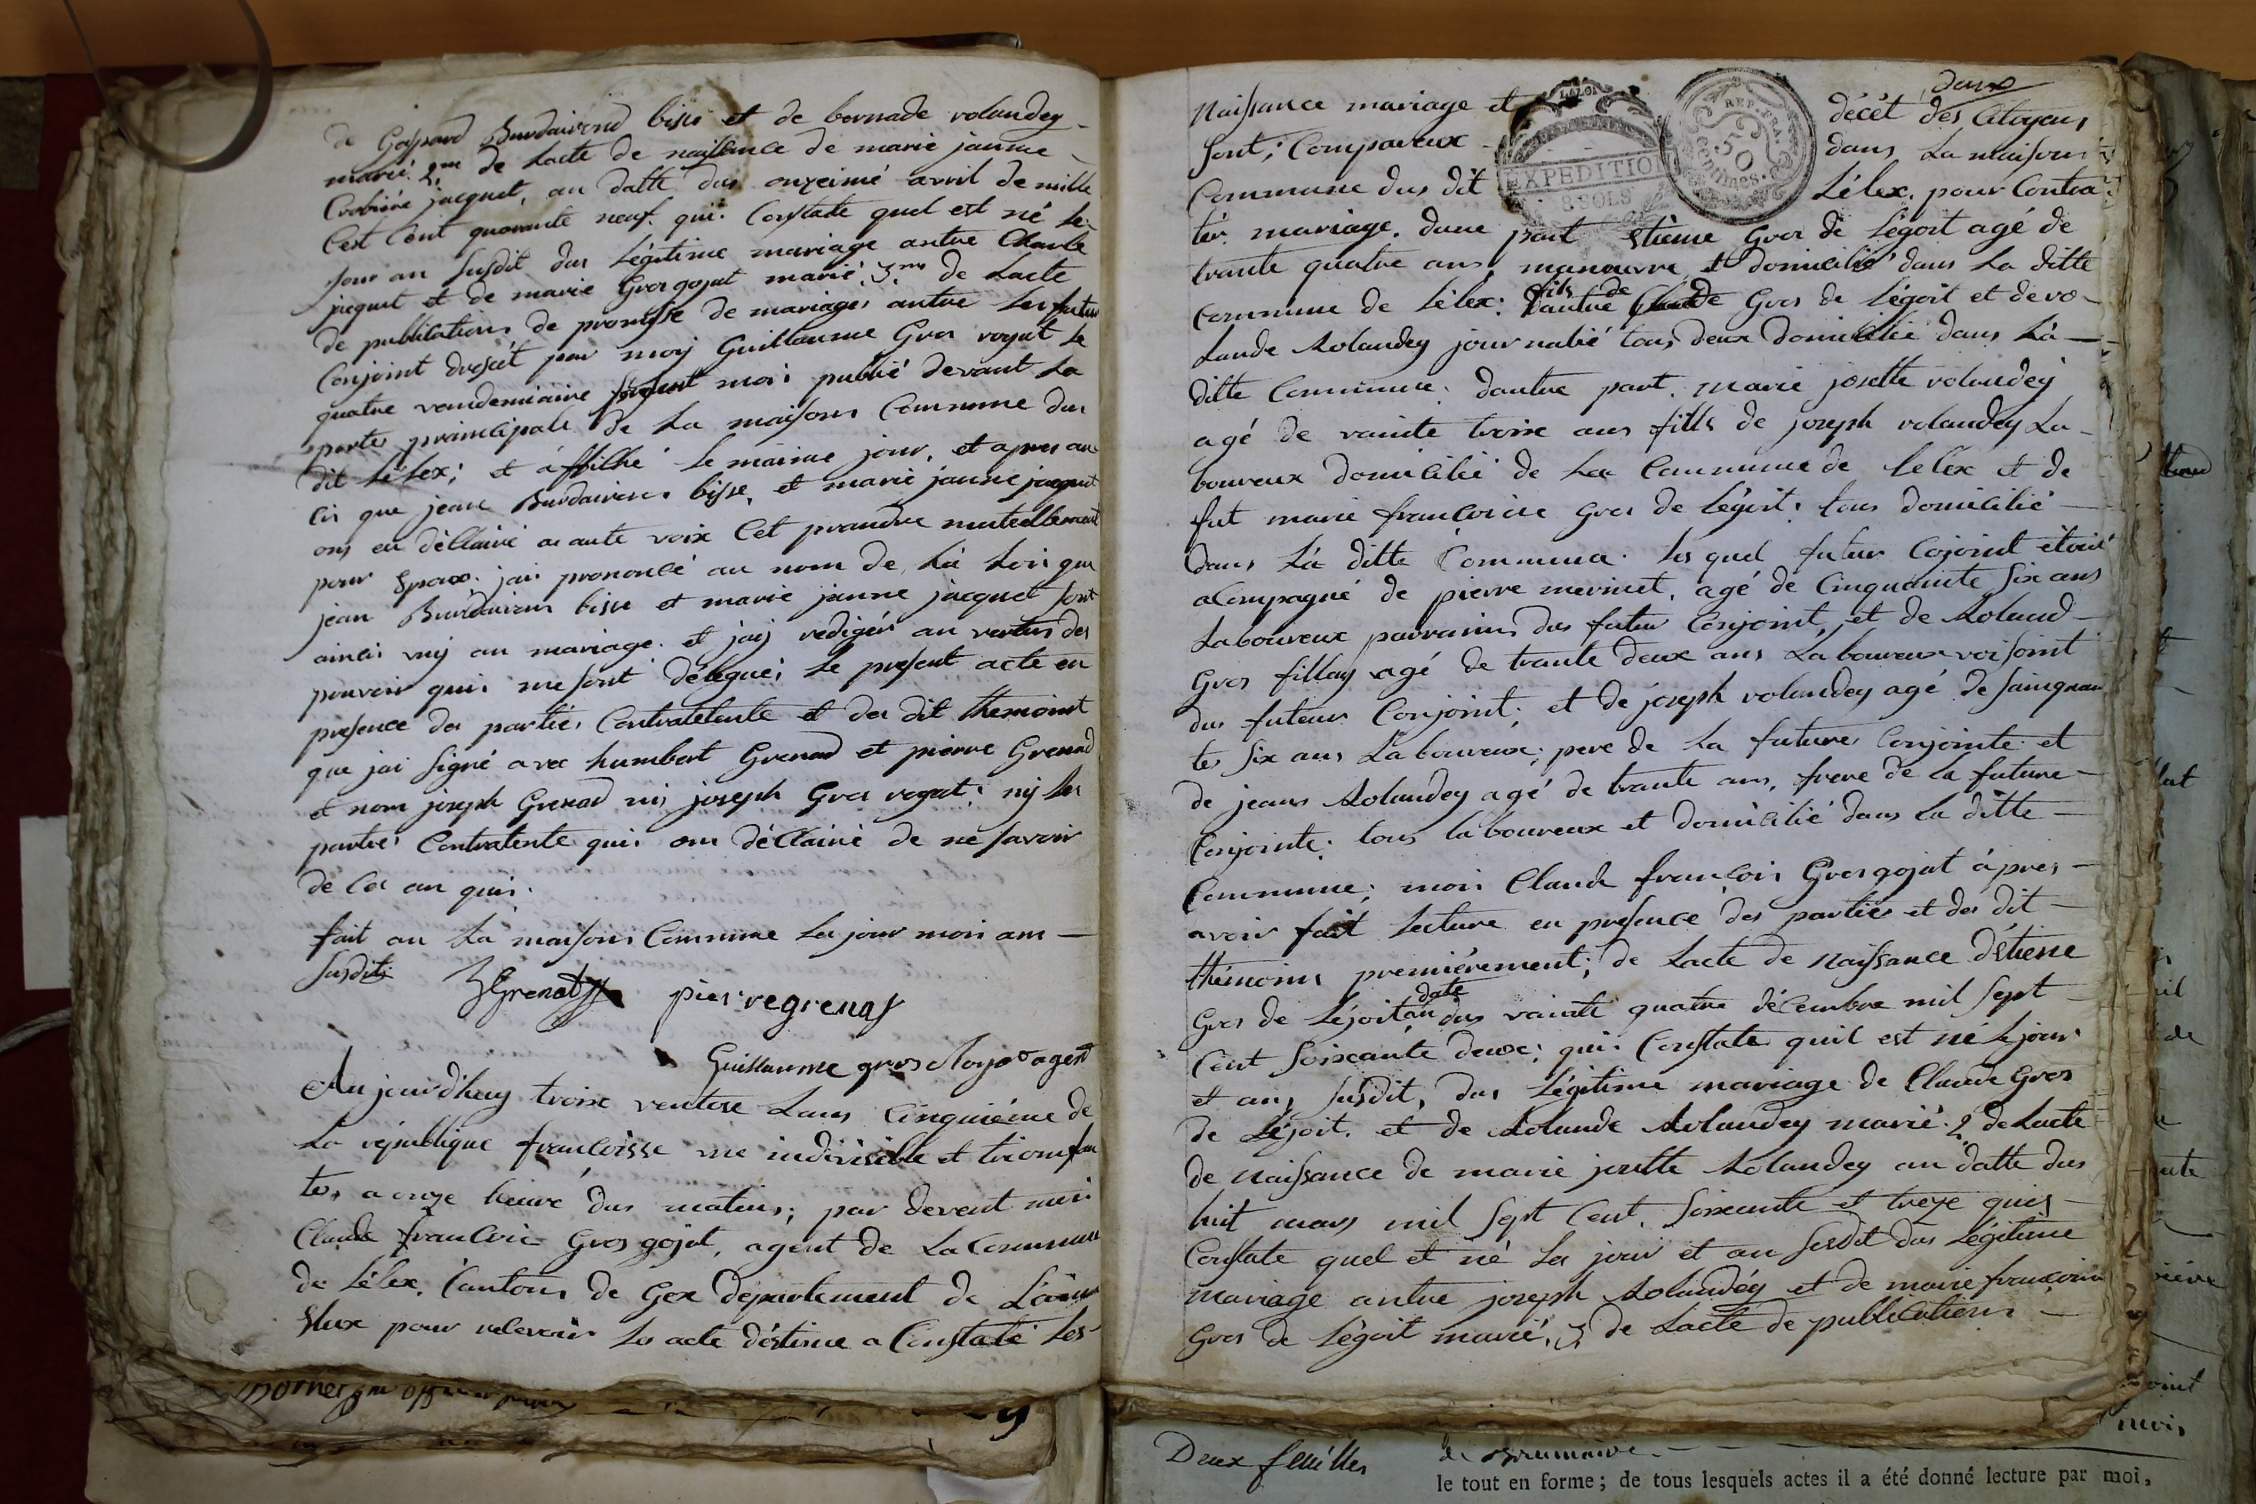 de Gaspard Burdairond bisse et de bernade rolandey
marié. 2.me de Lacte de naissance de marie jeanne
jacquet, an datte dus onzeimé avril de mille
Cest Cent quarante neuf. qui. Constate quel est né le
jour an susdit dus Légitime mariage antre Charle
jacquet et de marie Grosgojat marié. 3.me de Lacte
de publication de promesse de mariages antre Les futur
Conjoint dressét par moij Guillaume Gros royat le
quatre vandemiaire moi publié devant La
porte principale de La maison Commune dus
dit Lélex; et afflihé le maime jour. et apres au
cis que jean Burdairon bisse, et marie janne jacquet
ons en déClairé a aute voix Cet prandre mutuellement
pour Epoux. jai prononcé au nom de La Loi que
jean Burdairon bisse et marie janne jacquet sont
ainsi unij au mariage. et jaij redigér au vertus des
pouvoir qui me sont délégué; Le present acte en
presence des partiés Contratetente et des dit themoint
que jai signé avec humbert Grenard et pierre Grenard
et nom joseph Grenard nij joseph Gros royat; nij les
partiés Contratente qui on déClairé de ne savoir
de Ces an quis.
fait an La maison Commune Les jour mois am
susdits
hGrenard pierregrenaz
Guillaume gros Royat agent
Aujourd'huy troixe ventose Lans Cinquiéme de
La république francoisse une indivisible et triomfan
te, a onze heure dus matin; par devent moi
Claude francois Gros gojat, agent de La Commune
de Lélex, Cantons de Gex departement de L'ain
Elux pour relevoir Les acte déstiné a Constaté les
Naissance mariage et décét des Citoyens
dans
sont; Compareux dans La maison
Commune dus dit Lélex. pour Contra
LA LOI
EXPEDITION
8 SOLS
REP. FRA.
50
centimes.
tér mariage. dune part Etiene Gros de Légoit agé de
trante quatre ans, manouvre et domicilié dans La ditte
Commune de Lélex: fils de Claude Gros de Légoit et de ro
Lande Rolandey journalié tous deux Domicilié dans La
ditte Commune; dautre part. marie josette rolandey
agé de vainte troixe ans fille de joseph rolandey La
boureux domicilié de La Commune de Lelex et de
fut marie francoise Gros de Légoit. tous domicilié
dans La ditte Communa. Les quel futur Cojoint étois
aCompagné de pierre merinet, agé de Cinquainte six ans
Laboureux parrains dus futur Conjoint, et de Roland
Gros fillay agé de trante deux ans Laboureux voisoint
dus futeur Conjoint; et de joseph rolandey agé de sainquan
te six ans Laboureux; pere de La future Conjointe et
de jeans Rolandey agé de trante ans, frere de La future
Conjointe; tous laboureux et domicilié dans La ditte
Commune; moi Claude françois Grosgojat àpres
avoir fait Lecture en presence des partiés et des dit
thémoins premiérement; de Lacte de Naissance d'Etiene
Gros de Léjoit an date dus vainte quatre décembre mil sept
Cent soixcante deux; qui Constate quil est né Le jour
et ans susdit, dus Légitime mariage de Claude Gros
de Léjoit. et de Rolande Rolandey marié. 2 de Lacte
de Naissance de marie josette Rolandey an datte dus
huit mars mil sept Cent. soixante et treze quis
Constate quel et né Les jour et an susdit dus Légitime
mariage antre joseph Rolandéy et de marie francoise
Gros de Légoit marié. 3 de Lacte de publication
Deux feuilles
de Brumaire
le tout en forme; de tous lesquels actes il a été donné lecture par moi,